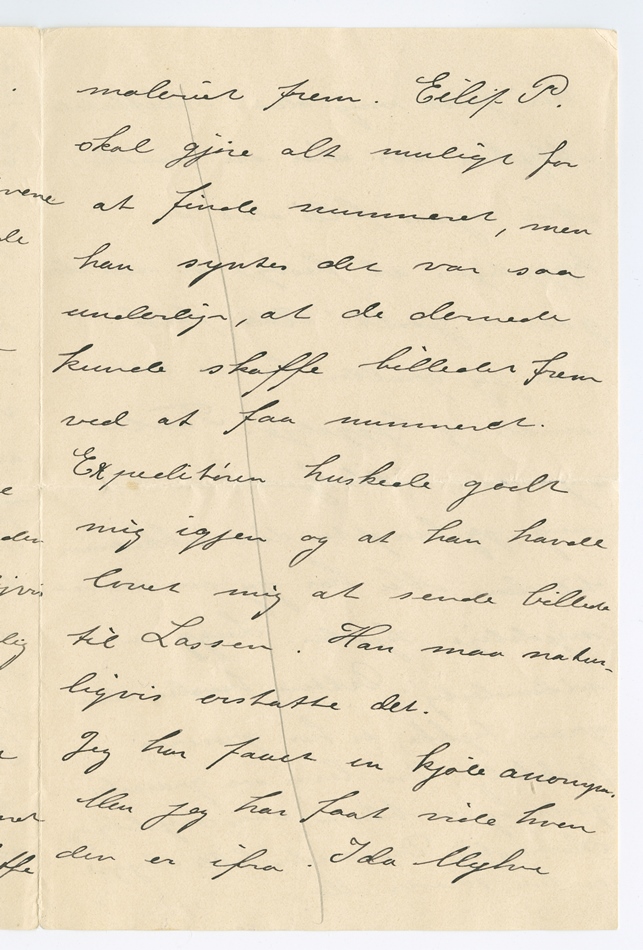 maleriet frem. Eilif P.
skal gjøre alt muligt for
at finde nummeret, men
han syntes det var saa
underligt, at de dernede
kunde skaffe billedet frem
ved at faa nummeret.
Expeditøren huskede godt
mig igjen og at han havde
lovet mig at sende billedet
til Lassen. Han maa natur-
ligvis erstatte det.
Jeg har faaet en kjole anonym.
Men jeg har faat vide hvem
den er ifra. Ida